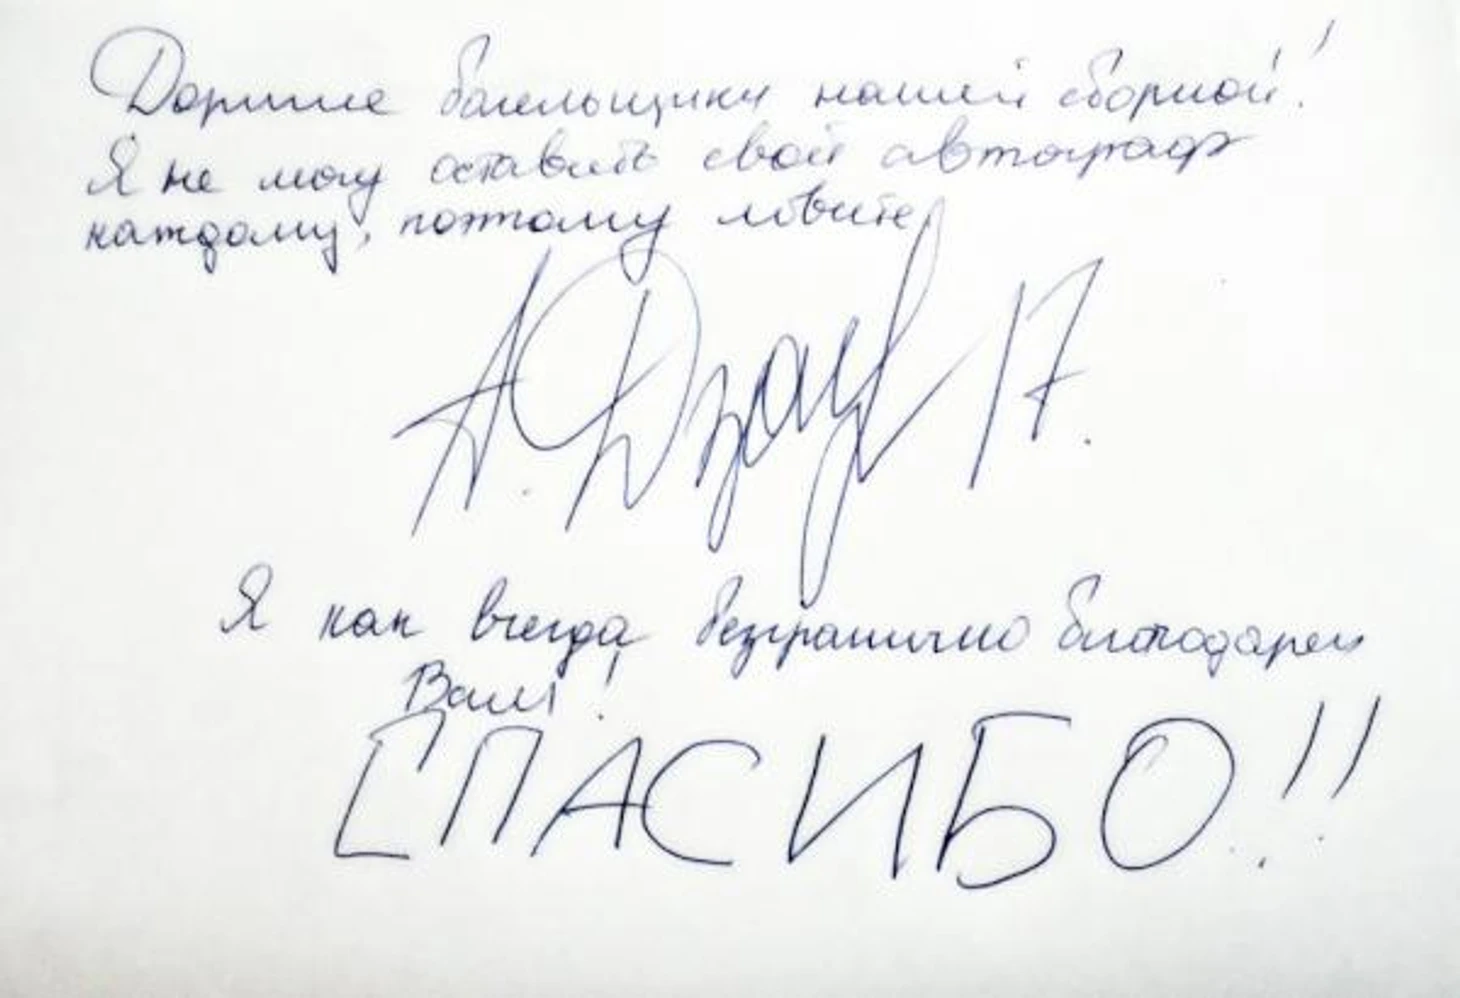 Дорогие болельщики нашей сборной!
Я не могу оставить свой автограф
каждому, поэтому ловите
А. Дзау 17.
Я как всегда безгранично благодарен
Вам!
СПАСИБО!!